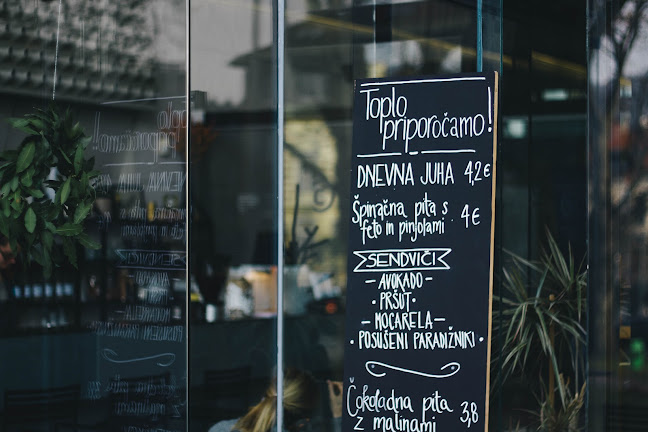 Toplo
priporočamo!
DNEVNA JUHA 4,2€
Špinačna pita s
feto in pinjolami 4€
SENDVIČI
- AVOKADO -
• PRŠUT •
- MOCARELA -
• POSUŠENI PARADIŽNIKI •
Čokoladna pita
z malinami 3,8